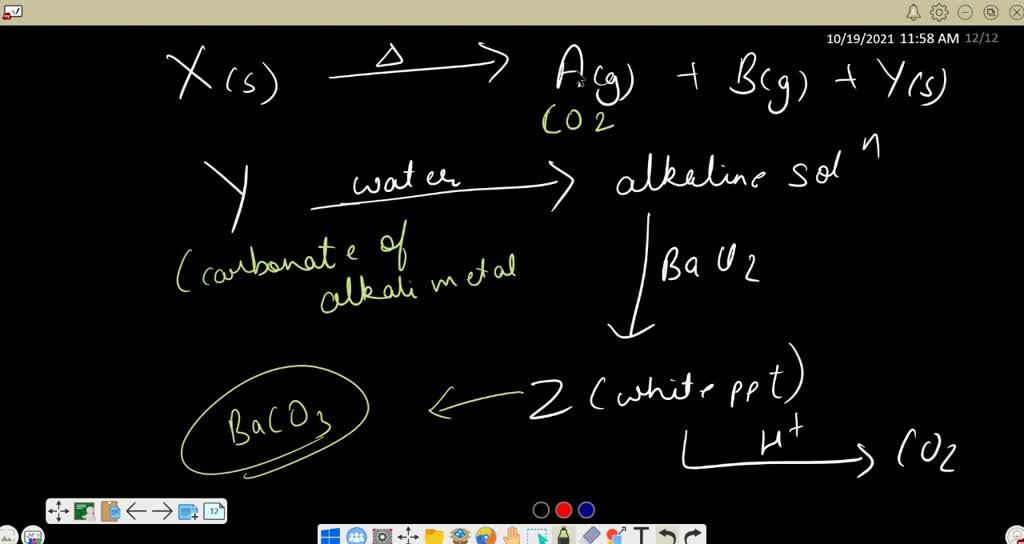 10/19/2021 11:58 AM 12/12
X(s) Δ→ A(g) + B(g) + Y(s)
CO2
Y water→ alkaline solⁿ
(carbonate of
alkali metal
BaCl2
Z (white ppt)
BaCO3
H+
→ CO2
12
T